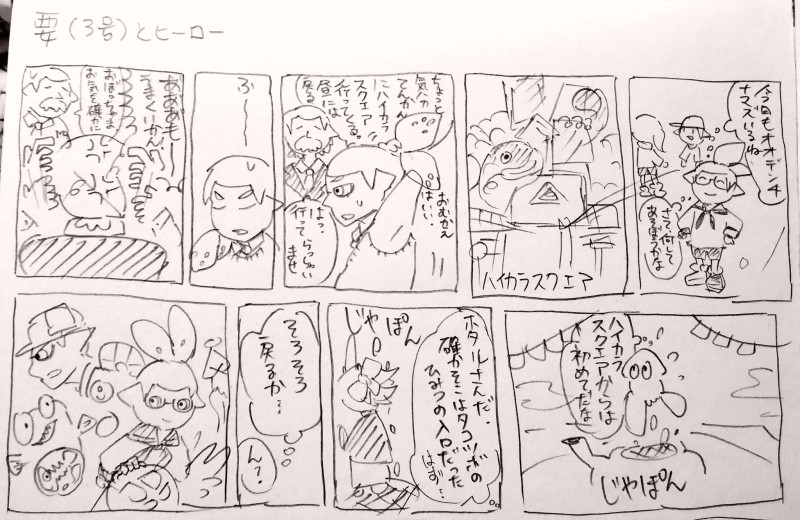 要(3号)とヒーロー
あああもー
うまくいかん
おぼっちゃま
お気を確かに
ふ〜〜
ちょっと
気分
てんかん
にハイカラ
スクエア
行ってくる。
昼には
戻る
おむかえ
はいい。
はっ。
行ってらっしゃい
ませ
ハイカラスクエア
今日もオオデンチ
ナマズいるね
さて、何して
あそぼうかな
そろそろ
戻るか…
ん?
じゃぽん
ホタルさんだ。
確かそこはタコツボの
ひみつの入口だった
はず…
ハイカラ
スクエアからは
初めてだな
じゃぽん